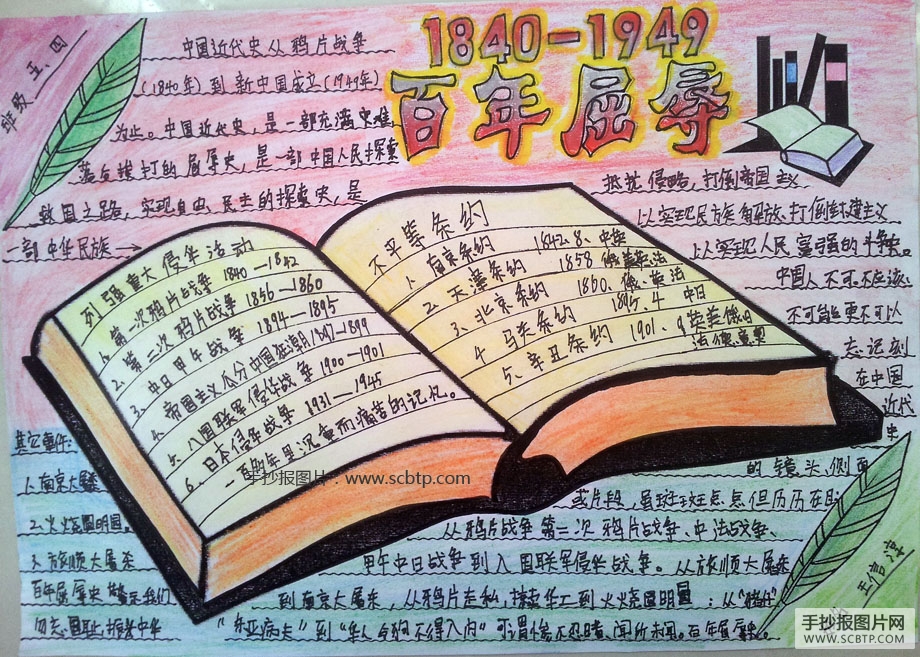 1840-1949
百年屈辱
班级 五、四
中国近代史从鸦片战争
(1840年)到新中国成立(1949年)
为止。中国近代史,是一部充满灾难,
落后挨打的屈辱史,是一部中国人民探索
救国之路,实现自由、民主的探索史,是
一部中华民族→
抵抗侵略,打倒帝国主义
以实现民族解放、打倒封建主义
以实现人民富强的斗争史。
中国人不可、不应该、
不可能更不可以
忘记刻
在中国
近代
史
的镜头、侧面
或片段,虽斑斑点点但历历在目
从鸦片战争第二次鸦片战争、中法战争、
甲午中日战争到八国联军侵华战争。从旅顺大屠杀
到南京大屠杀,从鸦片走私,掠卖华工到火烧圆明园;从
"东亚病夫"到"华人与狗不得入内"可谓惨不忍睹,闻所未闻。百年屈辱史。
列强重大侵华活动
1、第一次鸦片战争 1840—1842
2、第二次鸦片战争 1856—1860
3、中日甲午战争 1894—1895
4、帝国主义瓜分中国狂潮1897—1899
5、八国联军侵华战争 1900—1901
6、日本侵华战争 1931—1945
一百多年里沉重而痛苦的记忆。
不平等条约
1、南京条约 1842.8、中英
2、天津条约 1858 俄美英法
3、北京条约 1860、俄、英法
4 马关条约 1895.4 中日
5、辛丑条约 1901.9 英美俄日
法德意奥
其它事件:
1、南京大屠杀
2、火烧圆明园。
3、旅顺大屠杀
百年屈辱史警示我们
勿忘国耻,振兴中华
王信淳
手抄报图片:www.scbtp.com
手抄报图片网
WWW.SCBTP.COM